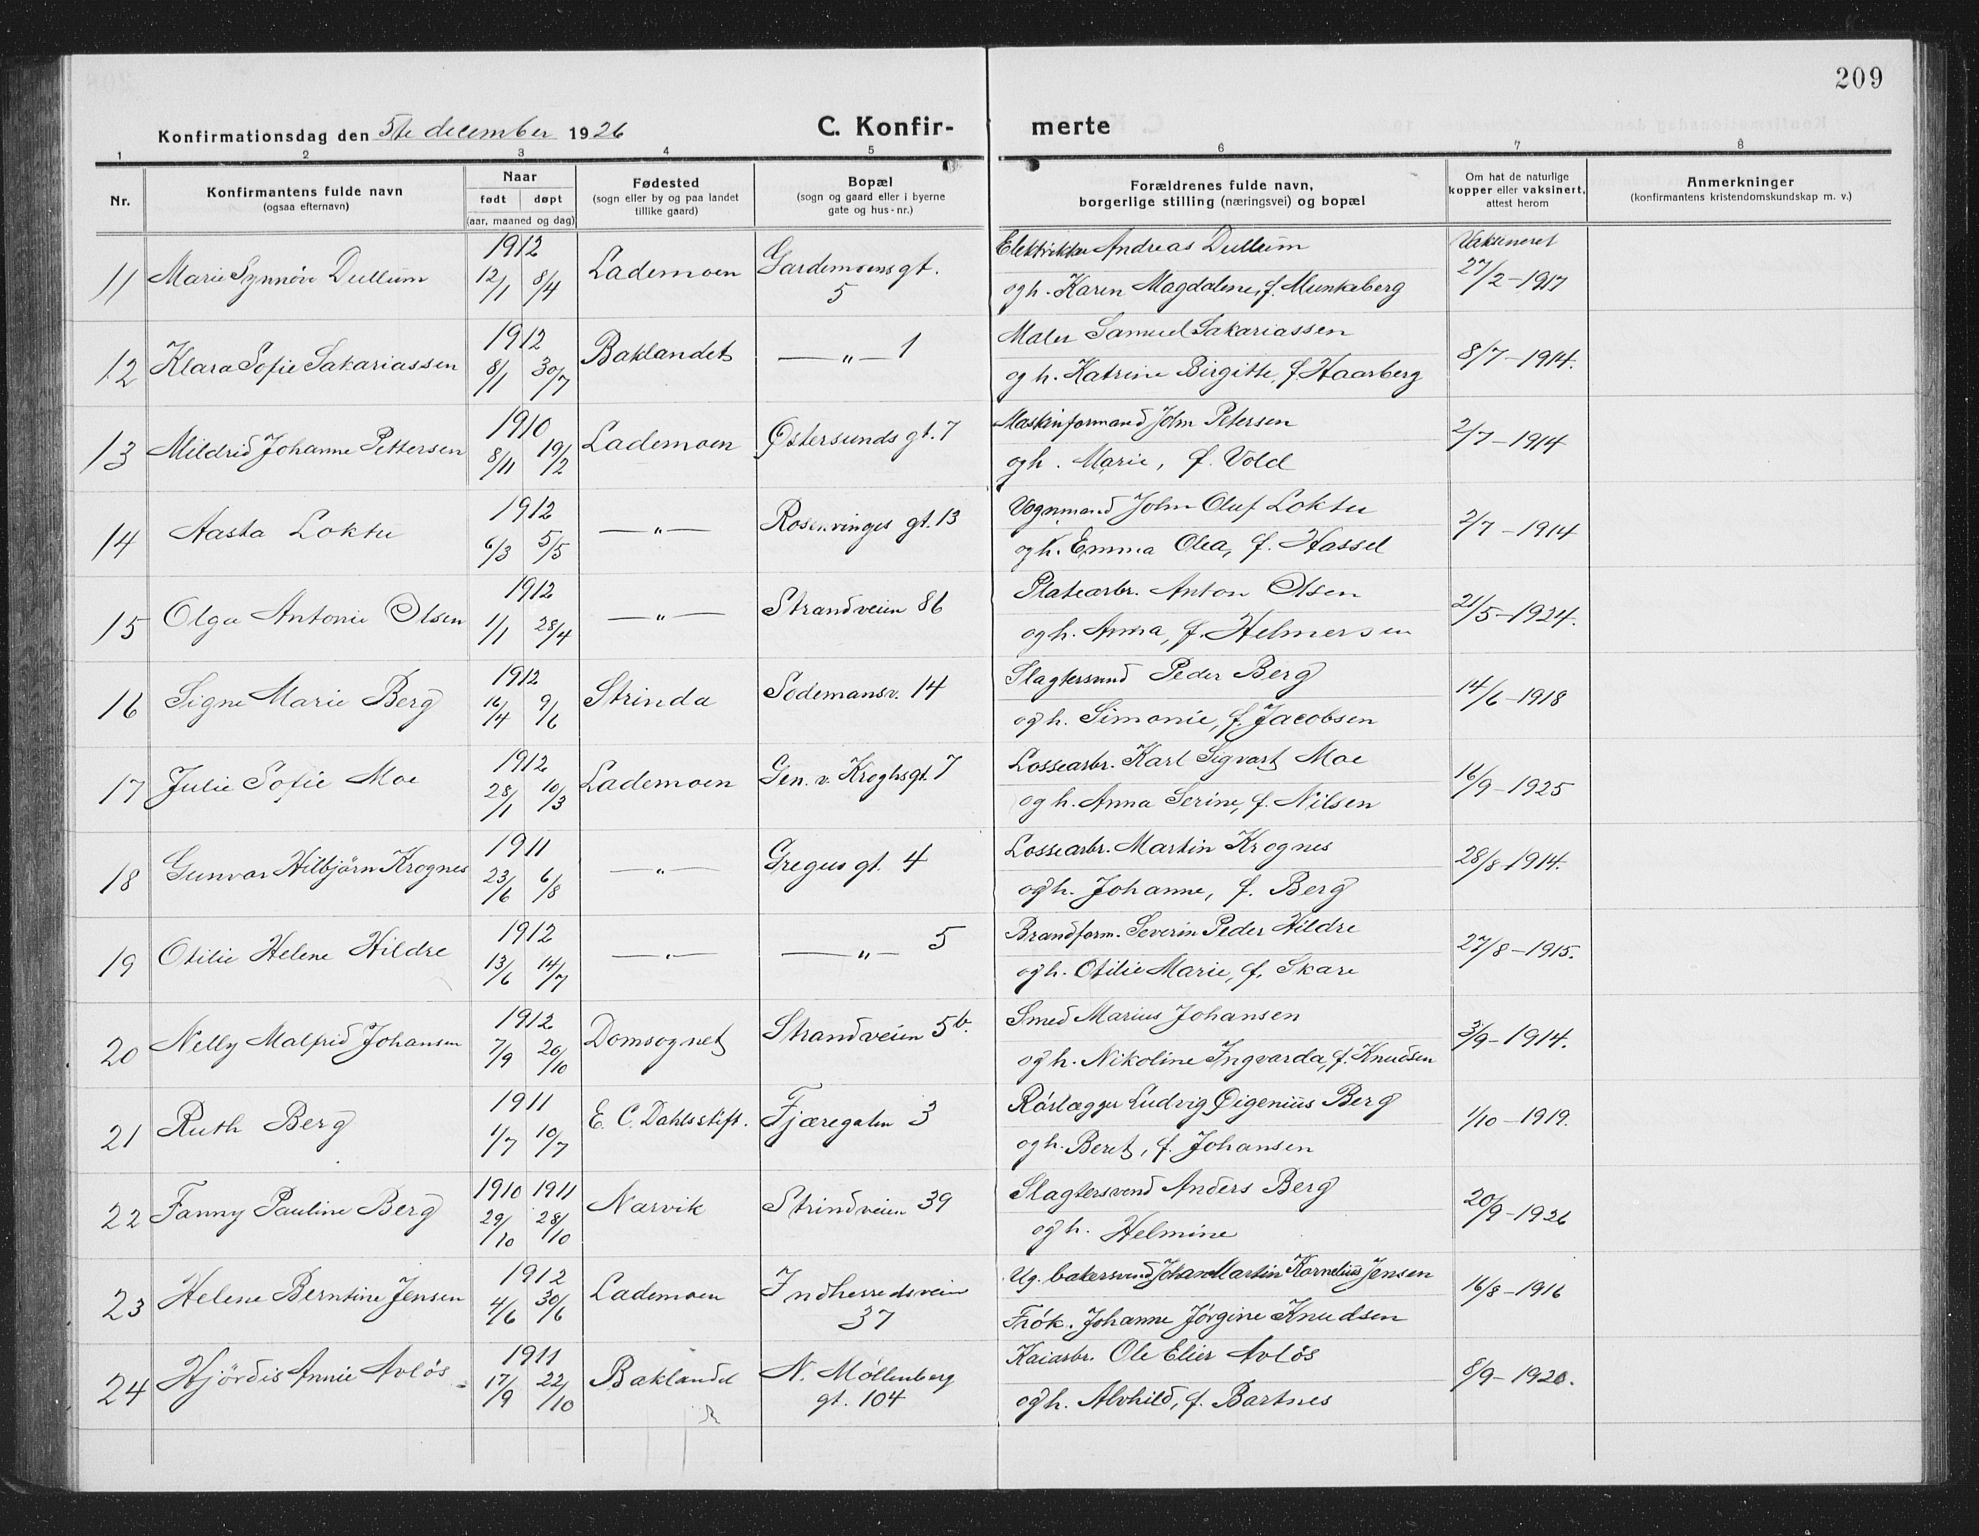 209
Konfirmationsdag den 5te december 1926
C. Konfirmerte
1 2 3 4 5 6 7 8
Nr.
Konfirmantens fulde navn
(ogsaa efternavn)
Naar
født døpt
(aar, maaned og dag)
Fødested
(sogn eller by og paa landet
tillike gaard)
Bopæl
(sogn og gaard eller i byerne
gate og hus-nr.)
Forældrenes fulde navn,
borgerlige stilling (næringsvei) og bopæl
Om hat de naturlige
kopper eller vaksinert,
attest herom
Anmerkninger
(konfirmantens kristendomskundskap m. v.)
1912 Elektrikker Andreas Dullum Vaksineret
11 Marie Synnøve Dullum 12/1 8/4 Lademoen Gardemoensgt. 5 og h. Karen Magdalene, f. Munkeberg 27/2-1917
1912 Maler Samuel Sakariassen
12 Klara Sofie Sakariassen 8/1 30/7 Baklandet —„— 1 og h. Katrine Birgitte, f. Haarberg 8/7-1914.
1910 Maskinformand John Petersen
13 Mildrid Johanne Pettersen 8/11 19/2 Lademoen Østersunds gt. 7 og h. Marie, f. Vold 2/7-1914
1912 Vognmand John Oluf Loktu
14 Aasta Loktu 6/3 5/5 —„— Rosenvinges gt. 13 og h. Emma Olea, f. Hassel 2/7-1914
1912 Platearbr. Anton Olsen
15 Olga Antonie Olsen 1/1 28/4 —„— Strandveien 86 og h. Anna, f. Helmersen 21/5-1924.
1912 Slagtersvend Peder Berg
16 Signe Marie Berg 16/4 9/6 Strinda Sodemansv. 14 og h. Simonie, f. Jacobsen 14/6-1918
1912 Lossearbr. Karl Sigvart Moe
17 Julie Sofie Moe 28/1 10/3 Lademoen Gen. v. Kroghsgt. 7 og h. Anna Serine, f. Nilsen 16/9-1925
1911 Lossearbr. Martin Krognes
18 Gunvor Hilbjørn Krognes 23/6 6/8 —„— Gregus gt. 4 og h. Johanne, f. Berg 28/8-1914.
1912 Brandform. Severin Peder Hildre
19 Otilie Helene Hildre 13/6 14/7 —„— —„— 5 og h. Otilie Marie, f. Skare 27/8-1915.
1912 Smed Marius Johansen
20 Nelly Malfrid Johansen 7/9 20/10 Domsognet Strandveien 5b. og h. Nikoline Ingvarda, f. Knudsen 3/9-1914.
1911 Rørlægger Ludvig Eigenius Berg
21 Ruth Berg 1/7 10/7 E. C. Dahlsstift. Fjæregaten 3 og h. Beret, f. Johansen 1/10-1919.
1910 1911 Slagtersvend Anders Berg
22 Fanny Pauline Berg 29/10 28/10 Narvik Strindveien 39 og h. Helmine 20/9-1926
1912 Ug. bakersvend Johan Martin Kornelius Jensen
23 Helene Berntine Jensen 4/6 30/6 Lademoen Indherredsveien 37 Frøk. Johanne Jørgine Knudsen 16/8-1916
1911 Kaiarbr. Ole Elier Avløs
24 Hjørdis Annie Avløs 17/9 22/10 Baklandet N. Møllenberg gt. 104 og h. Alvhild, f. Bartnes 8/9-1920.